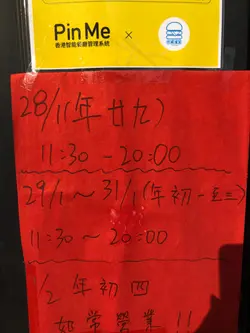 Pin Me ×
香港智能餐廳管理系統
28/1(年廿九)
11:30 - 20:00
29/1 ~ 31/1(年初一至三)
11:30 ~ 20:00
1/2 年初四
如常營業!!